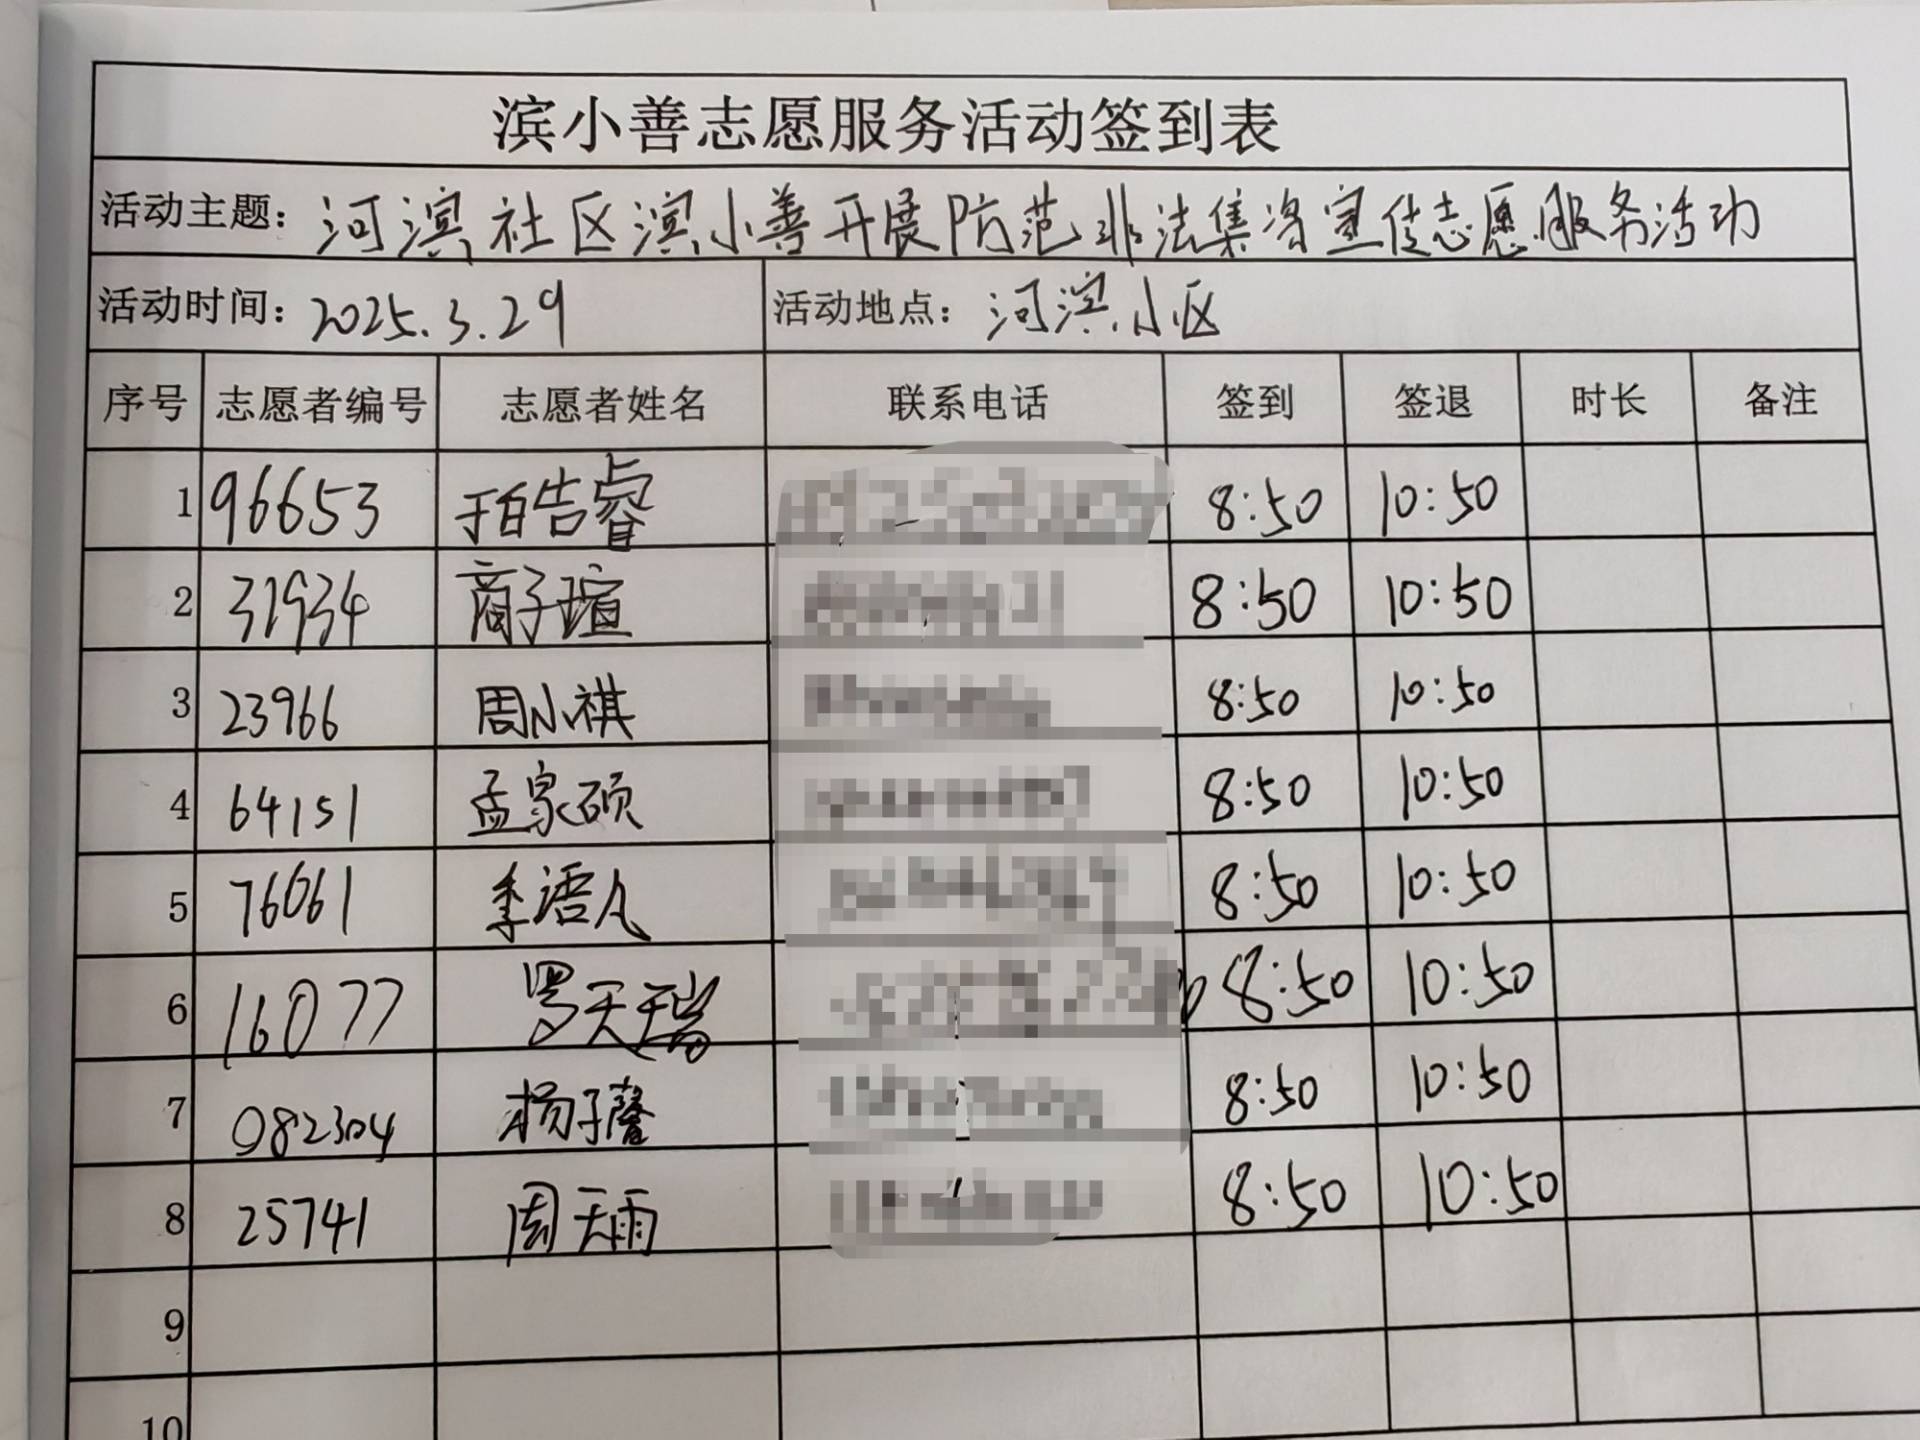 滨小善志愿服务活动签到表
活动主题：河滨社区滨小善开展防范非法集资宣传志愿服务活动
活动时间：2025.3.29 活动地点：河滨小区
序号 志愿者编号 志愿者姓名 联系电话 签到 签退 时长 备注
1 96653 于柏皓睿 8:50 10:50
2 31934 商子瑄 8:50 10:50
3 23966 周小祺 8:50 10:50
4 64151 孟家硕 8:50 10:50
5 76061 季语凡 8:50 10:50
6 16077 罗天瑞 8:50 10:50
7 082304 杨子馨 8:50 10:50
8 25741 周天雨 8:50 10:50
9
10